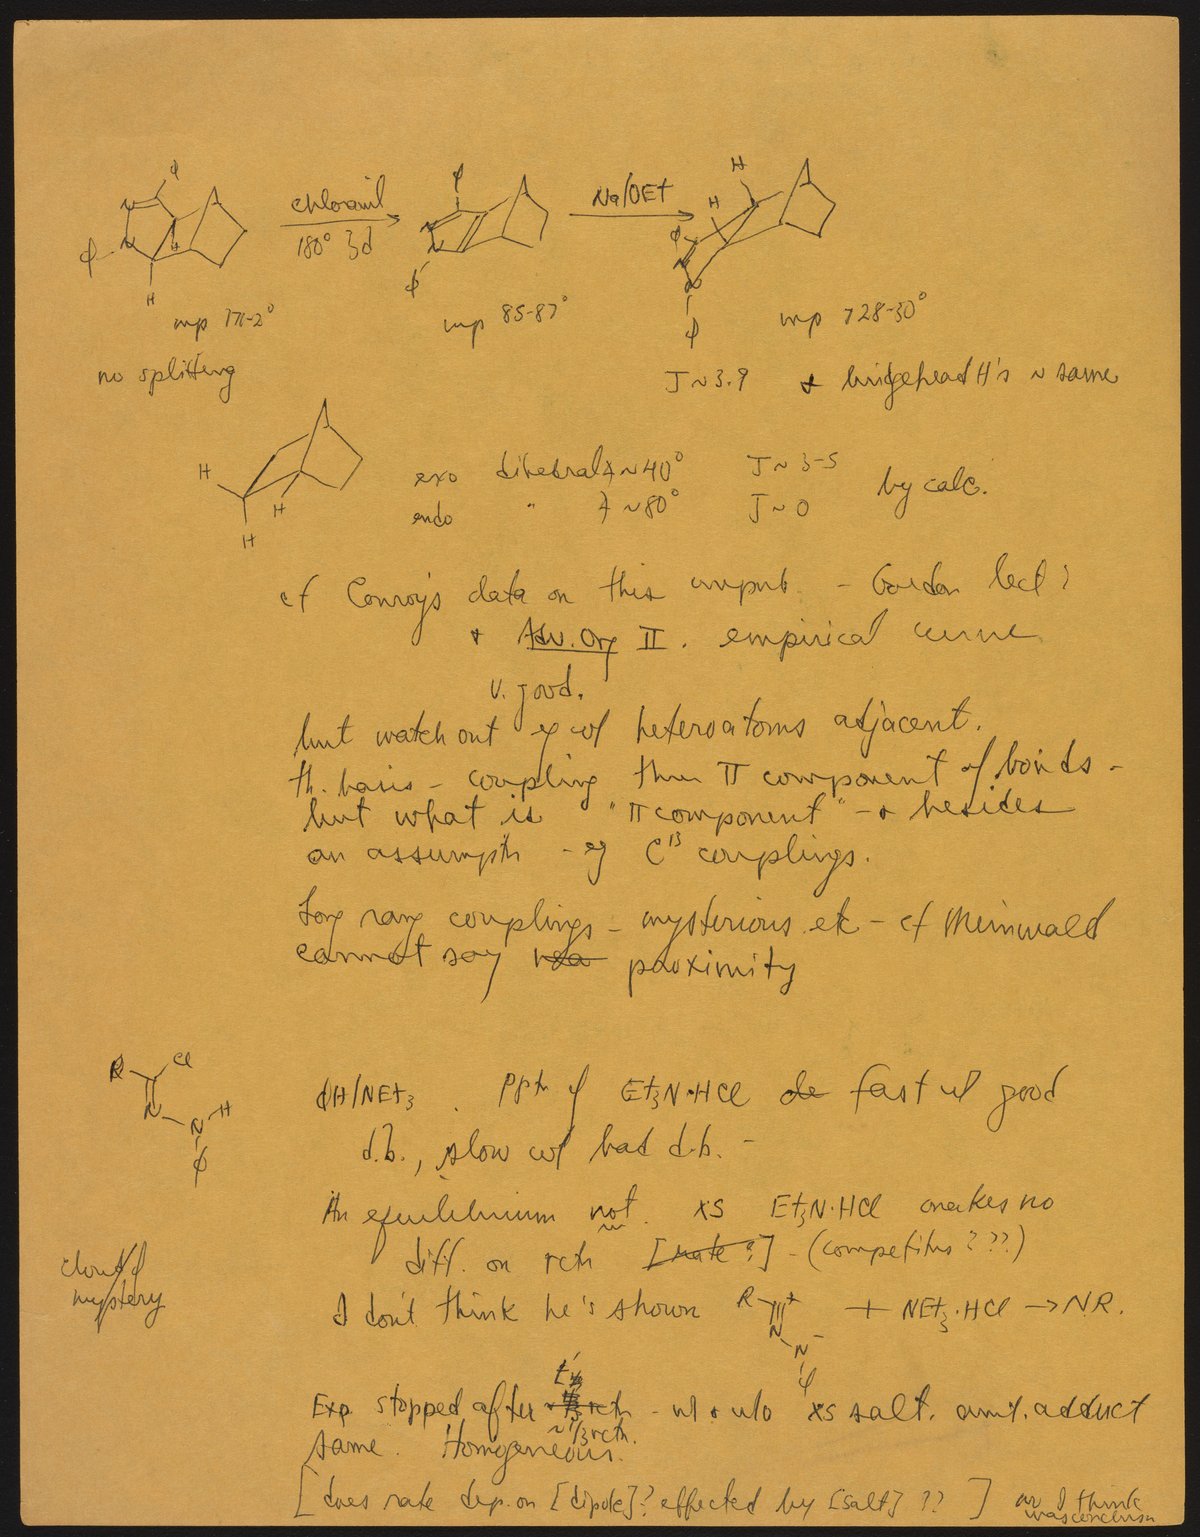 φ
N
N
φ
H
H
chloranil
180° 3d
φ
N
N
φ
Na/OEt
H
H
φ
N
N
φ
mp 171-2°
mp 85-87°
mp 128-30°
no splitting
J~3.9 + bridgehead H's ~ same
H
H
H
exo dihedral ∡ ~40° J~3-5
endo " ∡ ~80° J~0
by calc.
cf Conroy's data on this unpub. - Gordon lect?
+ Adv. Org II. empirical curve
v. good.
but watch out eg w/ heteroatoms adjacent.
th. basis - coupling thru π component of bonds -
but what is "π component" - + besides
an assumptn - eg C13 couplings.
Long rang couplings - mysterious etc - cf Meinwald
cannot say proximity
R
Cl
N
N
H
φ
φH/NEt3. pptn of Et3N·HCl fast w/ good
d.b., slow w/ bad d.b. -
An equilibrium not. xs Et3N·HCl makes no
diff. on rctn [rate?] - (competitns???)
cloud of
mystery
I don't think he's shown R + N N - φ + NEt3·HCl → NR.
Exp stopped after ~1/3 rctn. - w/ + w/o xs salt. amt. adduct
same. Homogeneous.
[does rate dep. on [dipole]? effected by [salt]??] as I think
was conclusn